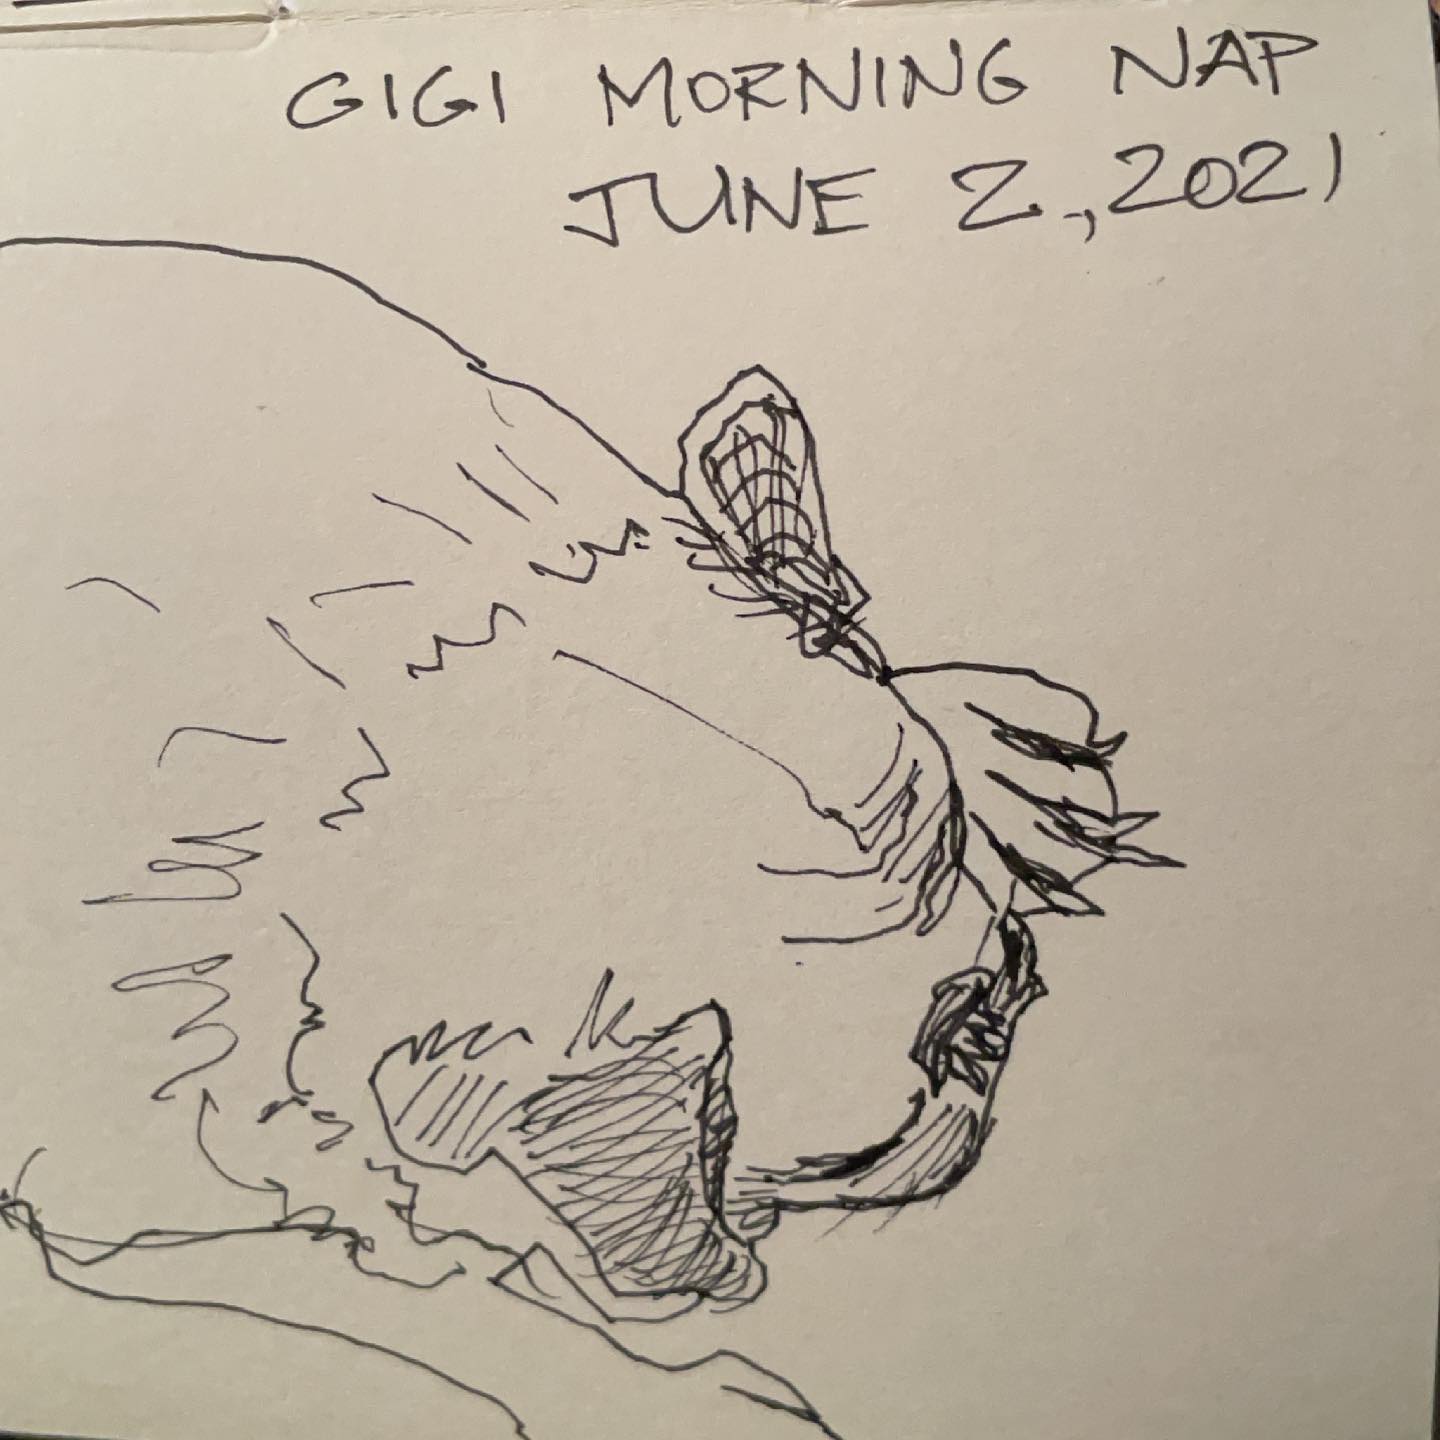 GIGI MORNING NAP
JUNE 2, 2021